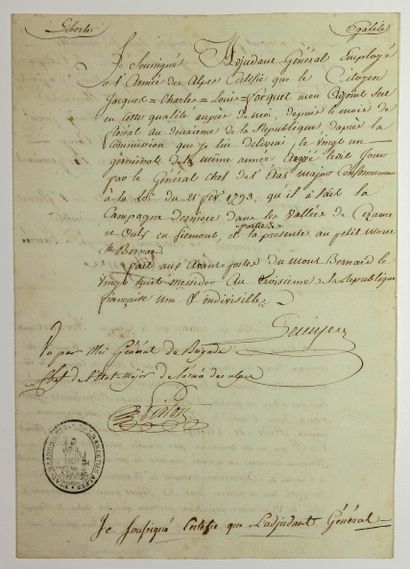 Liberté Egalité
Je Soussigné Adjudant Général Employé
à l'Armée des Alpes Certifie que le Citoyen
Jacques = Charles = Louis = mon adjoint sert
en cette qualité auprès de moi, depuis le mois de
floréal an deuxième de la République, d'après la
Commission que je lui délivrai le vingt un
germinal de la même année
par le Général chef de l'Etat major Conformément
à la Loi du 21 fév. 1793, qu'il a fait la
Campagne dernière dans les Vallées de
et Oulx en Piémont, et partie de la présente au petit Mont
St Bernard.
fait aux Avant-postes du Mont Bernard le
Vingt huit messidor An troisième de la République
française une & indivisible.
Vu par Moi Général de Brigade
Chef de l'Etat-Major de l'armée des alpes
Je soussigné Certifie que L'adjudant Général